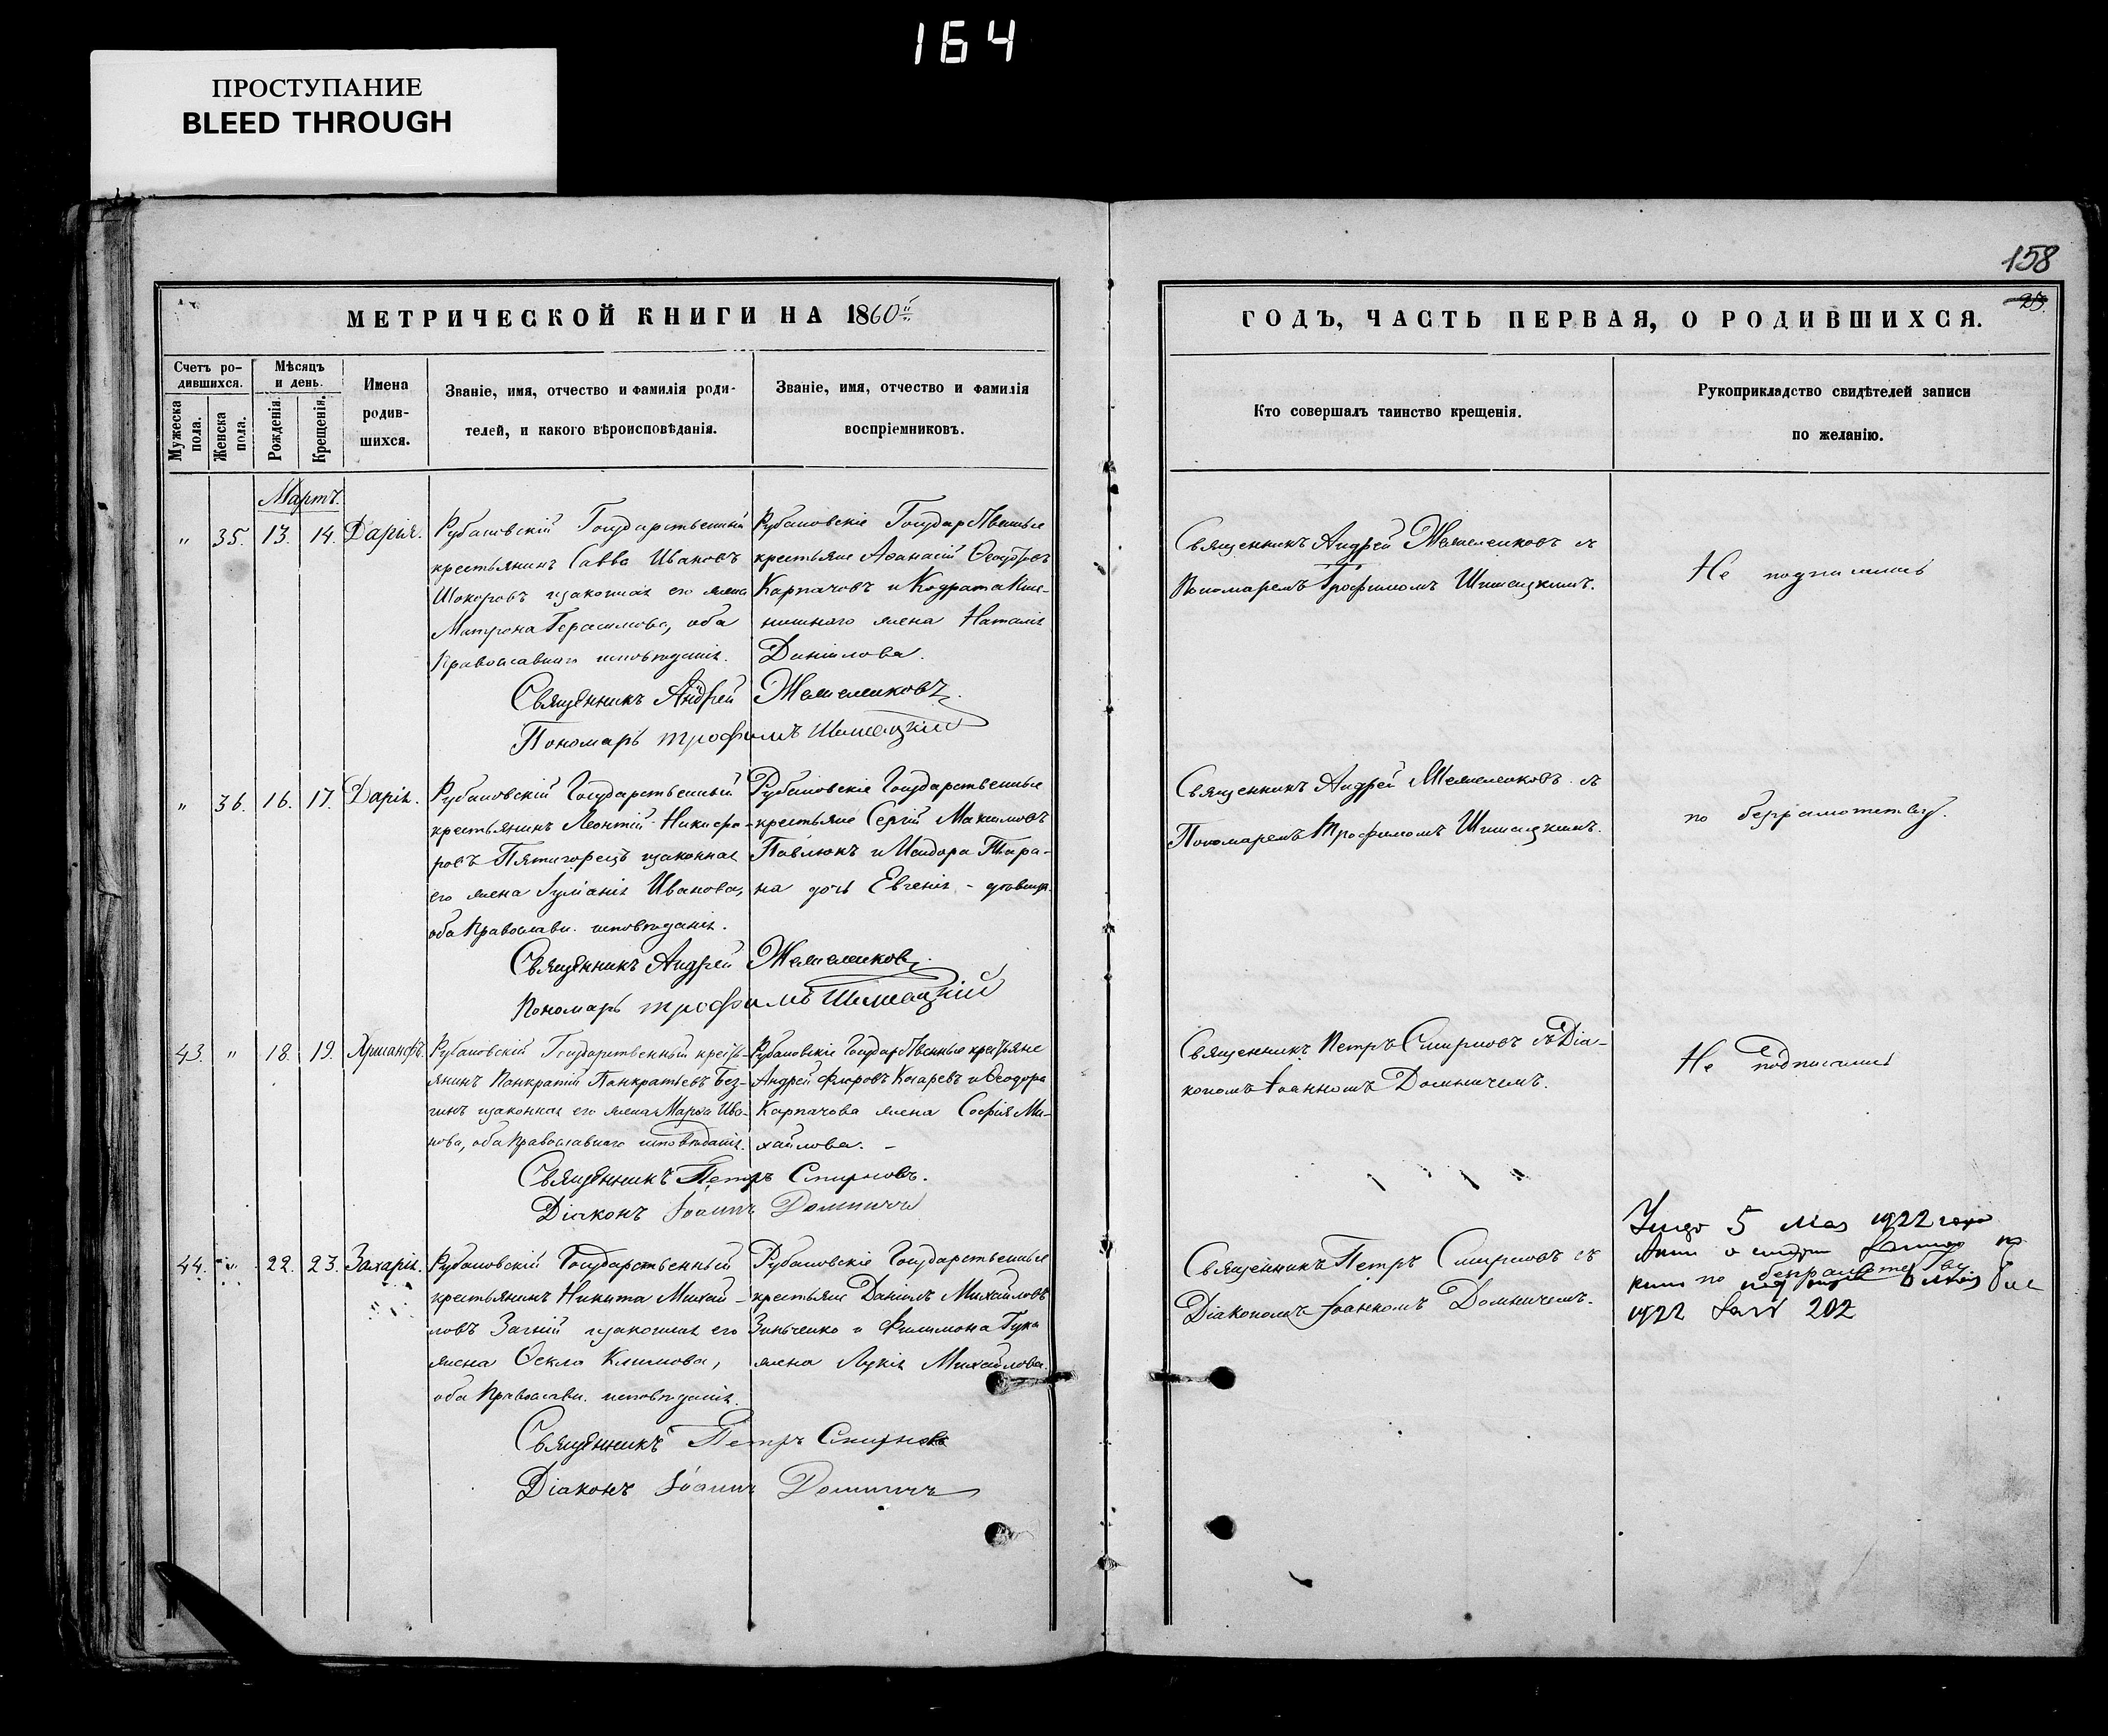 164
ПРОСТУПАНИЕ
BLEED THROUGH
158
25.
МЕТРИЧЕСКОЙ КНИГИ НА 1860й
Счетъ родившихся.
Мужеска пола.
Женска пола.
Мѣсяцъ и день.
Рожденія.
Крещенія.
Имена родив-
шихся.
Званіе, имя, отчество и фамилія роди-
телей, и какого вѣроисповѣданія.
Званіе, имя, отчество и фамилія
воспріемниковъ.
Мартъ.
" 35. 13. 14. Дарія.
Рубановскій Государственный
крестьянинъ Савва Ивановъ
законная его жена
Матрона Герасимова, оба
Православнаго исповѣданія.
Рубановскіе Государственные
крестьяне Аѳанасій Ѳеодоровъ
Карпачовъ и Кодрата
жена Наталія
Даніилова.
Священникъ Андрей
Пономарь Трофимъ
" 36. 16. 17. Дарія.
Рубановскій Государственный
крестьянинъ Леонтій Никифо-
ровъ Пятигорецъ законная
его жена Іуліанія Иванова,
оба Православн. исповѣданія.
Рубановскіе Государственные
крестьяне Сергій Максимовъ
Павлюкъ и Исидора Тара-
на дочь Евгенія - дѣвица.
Священникъ Андрей
Пономарь Трофимъ
43. " 18. 19.
Рубановскій Государственный кресть-
янинъ Панкратій Панкратьевъ Без-
гинъ законная его жена Марѳа Ива-
нова, оба Православнаго исповѣданія.
Рубановскіе Государственные крестьяне
Андрей Фировъ Косаревъ и Ѳеодора
Карпачова жена Софія Ми-
хайлова. -
Священникъ Петръ Смирновъ.
Діаконъ Іоаннъ Домничъ
44. " 22. 23. Захарія.
Рубановскій Государственный
крестьянинъ Никита Михай-
ловъ Загній законная его
жена Ѳекла Климова,
оба Православн. исповѣданія.
Рубановскіе Государственные
крестьяне Даніилъ Михайловъ
Зинченко и Филимона Гука
жена Лукія Михайлова.
Священникъ Петръ Смирновъ
Діаконъ Іоаннъ Домничъ
ГОДЪ, ЧАСТЬ ПЕРВАЯ, О РОДИВШИХСЯ.
Кто совершалъ таинство крещенія.
Рукоприкладство свидѣтелей записи
по желанію.
Священникъ Андрей съ
Пономаремъ Трофимомъ
Не подписались
Священникъ Андрей съ
Пономаремъ Трофимомъ
по безграмотству.
Священникъ Петръ Смирновъ съ Діа-
кономъ Іоанномъ Домничемъ.
Не подписались
Священникъ Петръ Смирновъ съ
Діакономъ Іоанномъ Домничемъ.
5 Мая 1922 года
по безграмотству
1922 202